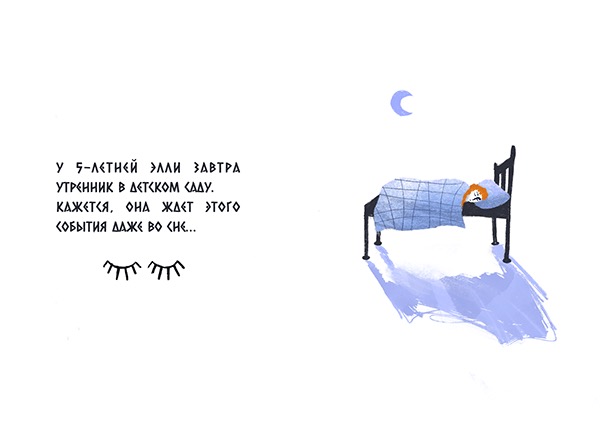 У 5-ЛЕТНЕЙ ЭЛЛИ ЗАВТРА
УТРЕННИК В ДЕТСКОМ САДУ.
КАЖЕТСЯ, ОНА ЖДЕТ ЭТОГО
СОБЫТИЯ ДАЖЕ ВО СНЕ...